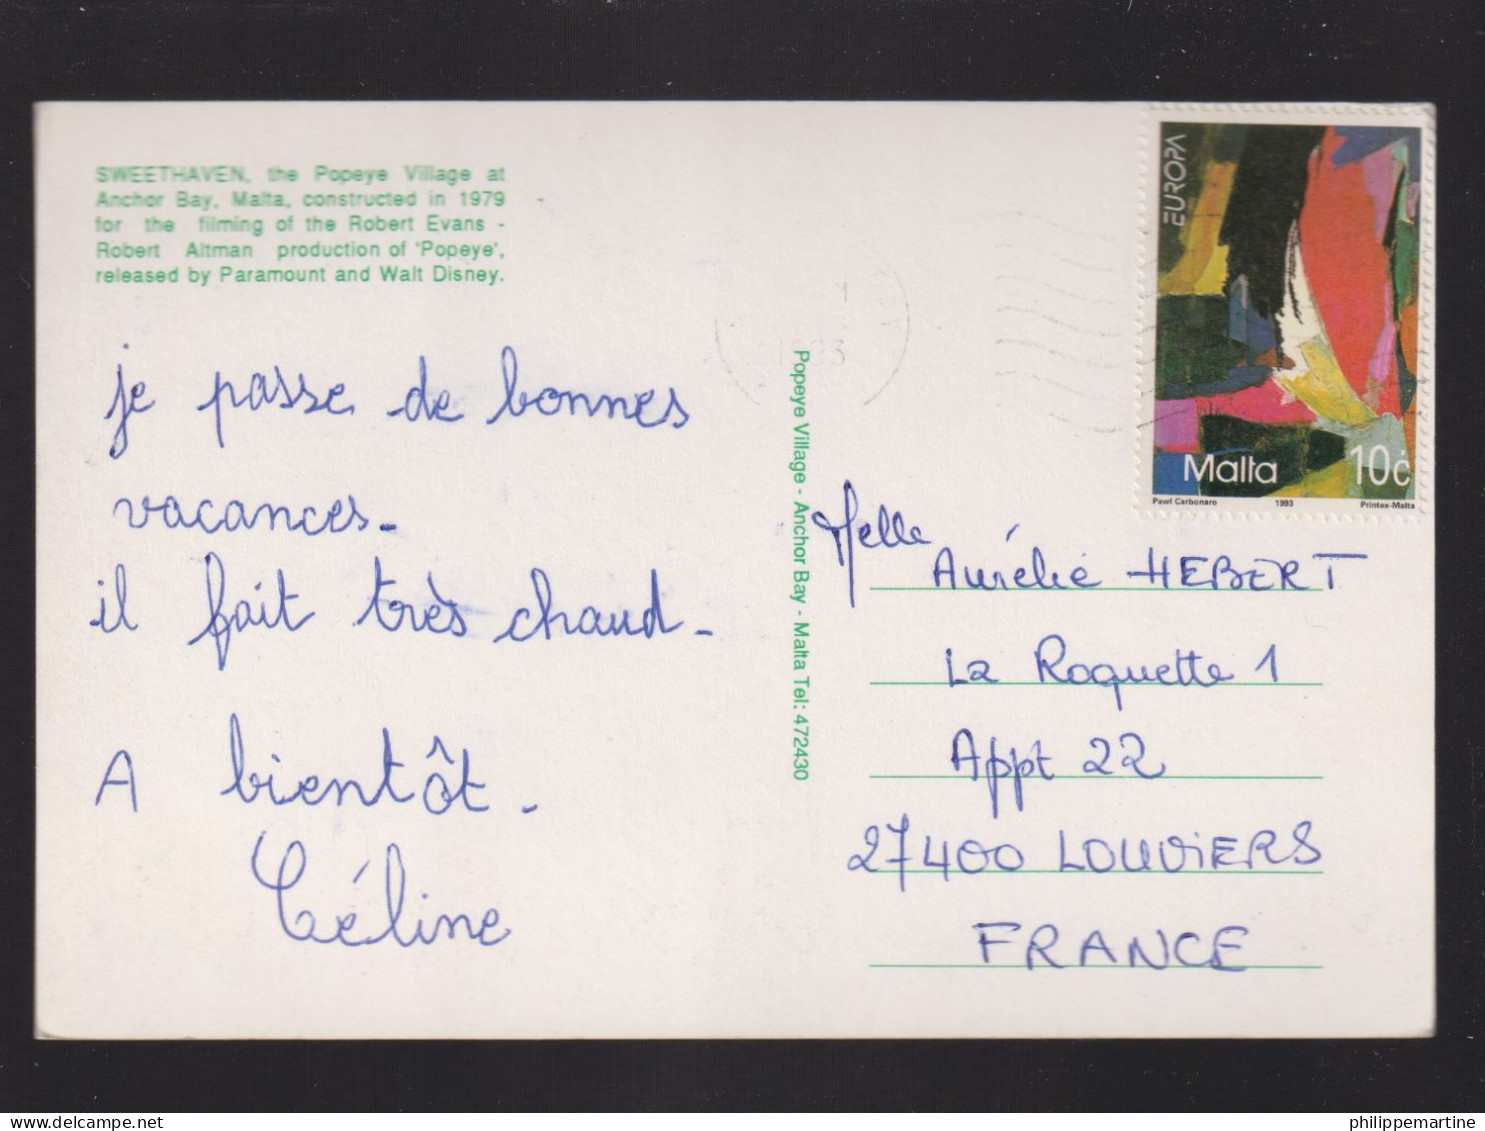 SWEETHAVEN, the Popeye Village at
Anchor Bay, Malta, constructed in 1979
for the filming of the Robert Evans -
Robert Altman production of 'Popeye',
released by Paramount and Walt Disney.
je passe de bonnes
vacances-
il fait très chaud-
A bientôt-
Céline
Popeye Village - Anchor Bay - Malta Tel: 472430
1993
EUROPA
Malta 10c
Pawl Carbonaro 1993 Printex-Malta
Melle
Aurélie HEBERT
La Roquette 1
Appt 22
27400 LOUVIERS
FRANCE
philippemartine